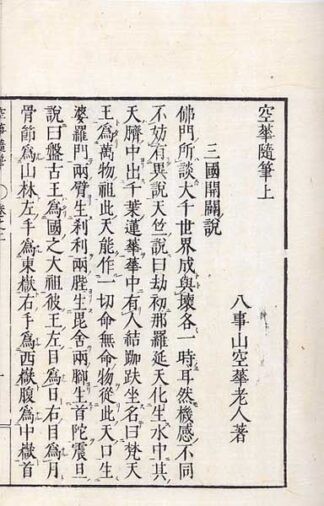 空華隨筆上
八事山空華老人著
三國開闢說
佛門所談大千世界成與壞各一時耳然機感不同
不妨有異說天竺說曰劫初那羅延天化生水中其
天臍中出千葉蓮華華中有人結跏趺坐名曰梵天
王為萬物祖此天能作一切命無命物從此天口生
婆羅門兩臂生刹利兩䏶生毘舍兩脚生首陀震旦
說曰盤古王為國之大祖彼王左目為日右目為月
骨節為山林左手為東嶽右手為西嶽腹為中嶽首